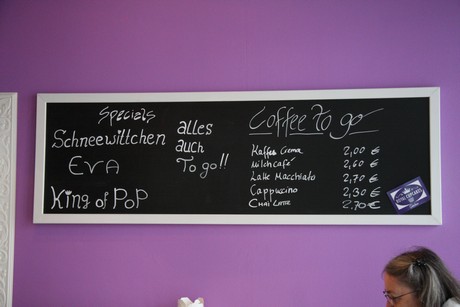 Specials
Schneewittchen
Eva
King of Pop
alles
auch
To go!!
Coffee to go
Kaffee Crema 2,00 €
Milchcafé 2,60 €
Latte Macchiato 2,70 €
Cappuccino 2,30 €
Chai Latte 2,70 €